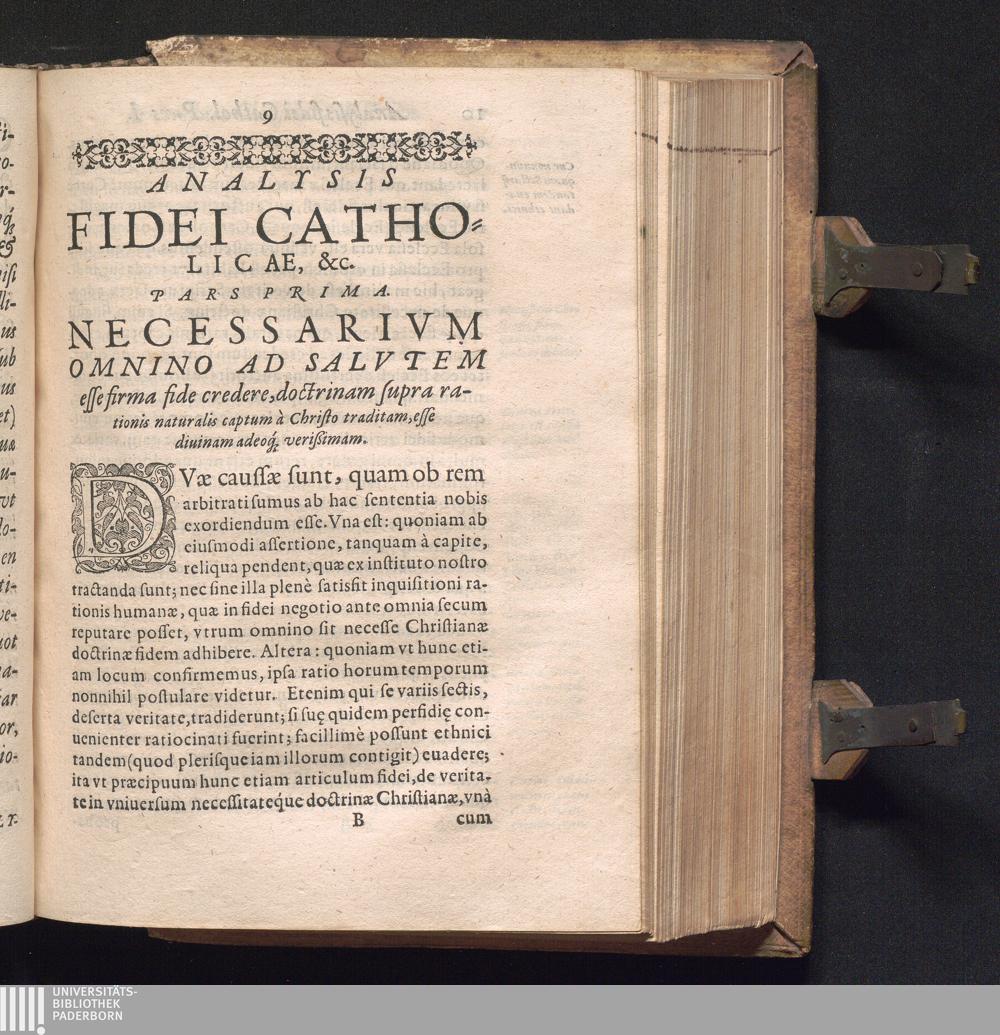 9
ANALYSIS
FIDEI CATHO-
LICAE, &c.
PARS PRIMA.
NECESSARIVM
OMNINO AD SALVTEM
eſſe firma fide credere, doctrinam ſupra ra-
tionis naturalis captum à Chriſto traditam, eſſe
diuinam adeoq́; verißimam.
DVæ cauſſæ ſunt, quam ob rem
arbitrati ſumus ab hac ſententia nobis
exordiendum eſſe. Vna eſt: quoniam ab
eiuſmodi aſſertione, tanquam à capite,
reliqua pendent, quæ ex inſtituto noſtro
tractanda ſunt; nec ſine illa plenè ſatisfit inquiſitioni ra-
tionis humanæ, quæ in fidei negotio ante omnia ſecum
reputare poſſet, vtrum omnino ſit neceſſe Chriſtianæ
doctrinæ fidem adhibere. Altera: quoniam vt hunc eti-
am locum confirmemus, ipſa ratio horum temporum
nonnihil poſtulare videtur. Etenim qui ſe variis ſectis,
deſerta veritate, tradiderunt; ſi ſuę quidem perfidię con-
uenienter ratiocinati fuerint; facillimè poſſunt ethnici
tandem (quod pleriſque iam illorum contigit) euadere;
ita vt præcipuum hunc etiam articulum fidei, de verita-
te in vniuerſum neceſſitatéque doctrinæ Chriſtianæ, vnà
B cum
UNIVERSITÄTS-
BIBLIOTHEK
PADERBORN